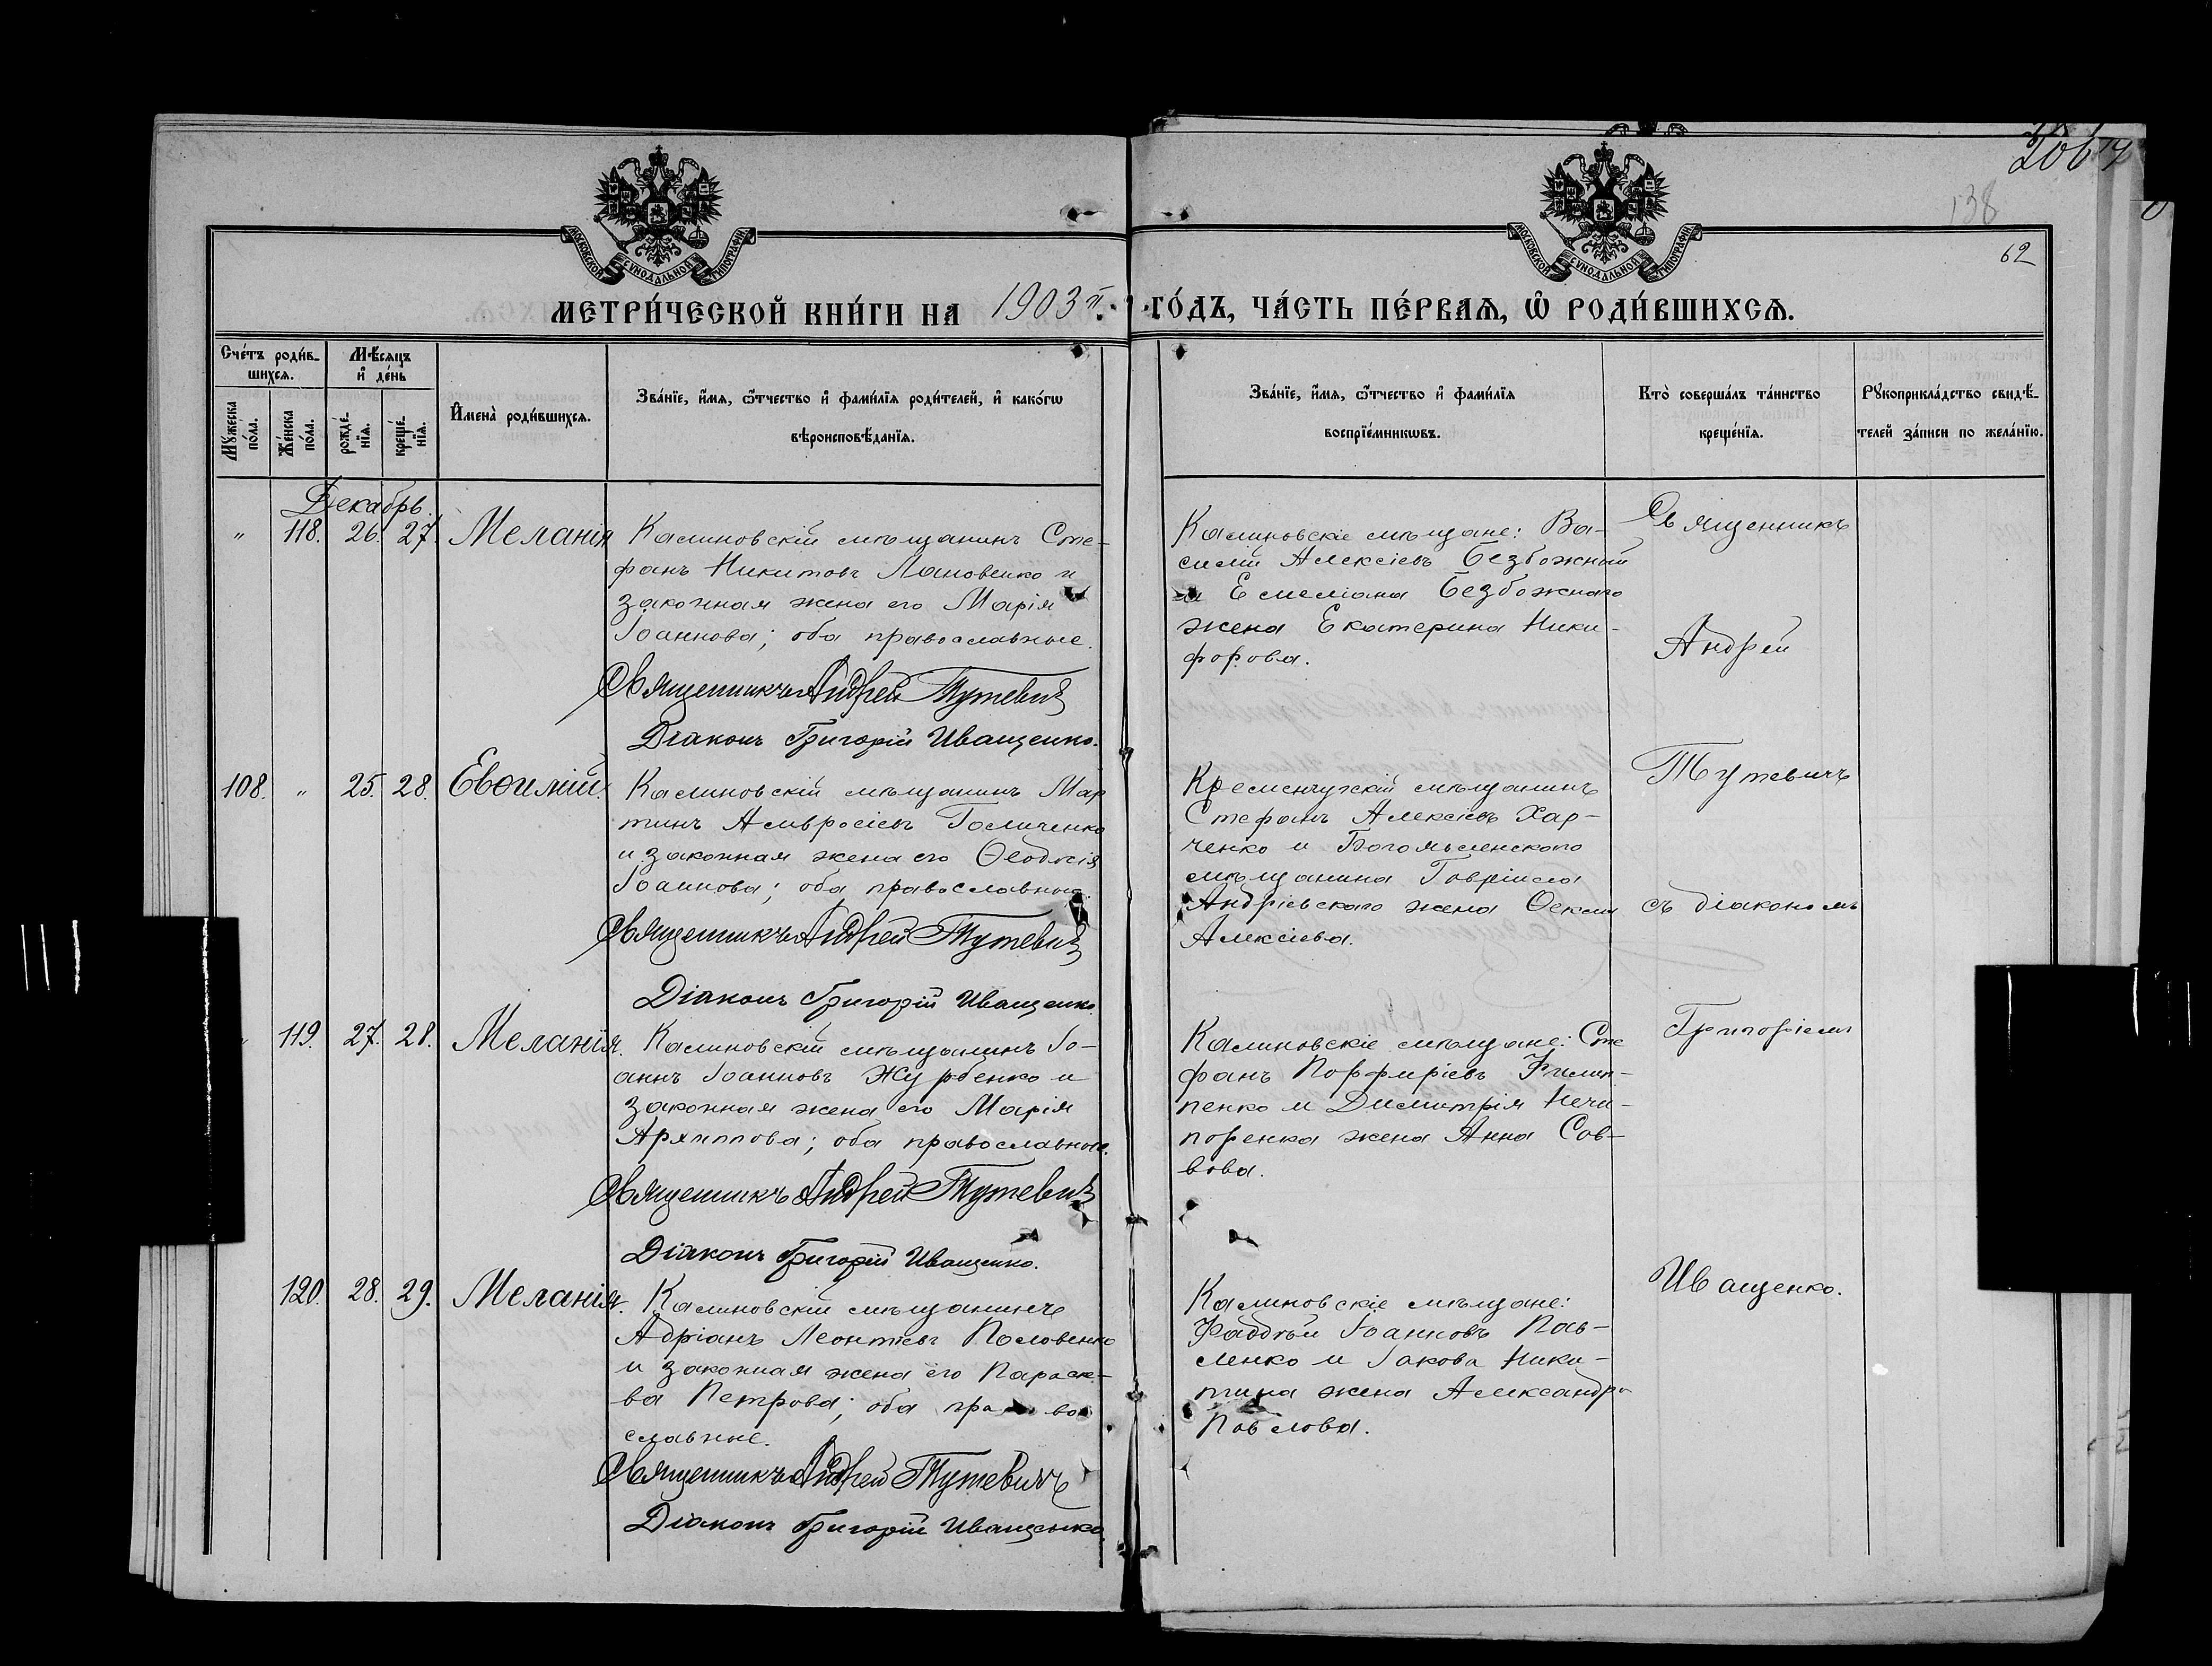 206
138
62
МОСКОВСКОЙ СУНОДАЛЬНОЙ ТИПОГРАФІИ
МОСКОВСКОЙ СУНОДАЛЬНОЙ ТИПОГРАФІИ
МЕТРИ́ЧЕСКОЙ КНИ́ГИ НА 1903 й. ГО́ДЪ, ЧА́СТЬ ПЕ́РВАѦ, Ѽ РОДИ́ВШИХСѦ.
Сче́тъ роди́в-
шихсѧ.
Мꙋжеска по́ла.
Же́нска по́ла.
Мѣ́сѧцъ
и҆ де́нь
рожде́-
нїѧ.
креще́-
нїѧ.
И҆мена̀ роди́вшихсѧ.
Зва́нїе, и҆́мѧ, ѻ҆́тчество и҆ фами́лїѧ роди́телей, и҆ како́гѡ
вѣроисповѣ́данїѧ.
Зва́нїе, и҆́мѧ, ѻ҆́тчество и҆ фами́лїѧ
воспрїе́мникѡвъ.
Кто̀ соверша́лъ та́инство
креще́нїѧ.
Рꙋкоприкла́дство свидѣ́-
телей за́писи по жела́нїю.
Декабрь.
„ 118. 26. 27. Меланія
Калиновскій мѣщанинъ Сте-
фанъ Никитовъ Лановенко и
законная жена его Марія
Іоаннова; оба православные.
Священникъ Андрей Тутевичъ
Діаконъ Григорій Иващенко.
Калиновскіе мѣщане: Ва-
силій Алексіевъ Безбожный
и Емеліана Безбожнаго
жена Екатерина Ники-
форова.
Священникъ
Андрей
108. „ 25. 28. Евѳимій.
Калиновскій мѣщанинъ Мар
тинъ Амвросіевъ Голиченко
и законная жена его Ѳеодосія
Іоаннова; оба православные
Священникъ Андрей Тутевичъ
Діаконъ Григорій Иващенко
Кременчугскій мѣщанинъ
Стефанъ Алексіевъ Хар-
ченко и Богомысленского
мѣщанина Гавріила
Андріевского жена Ѳекла
Алексіева.
Тутевичъ
съ діакономъ
„ 119. 27. 28. Меланія.
Калиновскій мѣщанинъ Іо-
аннъ Іоанновъ Журбенко и
законная жена его Марія
Архиппова; оба православные.
Священникъ Андрей Тутевичъ
Діаконъ Григорій Иващенко.
Калиновскіе мѣщане: Сте
фанъ Порфиріевъ Филип-
пенко и Димитрія Ничи-
поренка жена Анна Сав-
вова.
Григоріемъ
120. 28. 29. Меланія.
Калиновскій мѣщанинъ
Адріанъ Леонтіевъ Половенко
и законная жена его Параске-
ва Петрова; оба право
славные.
Священникъ Андрей Тутевичъ
Діаконъ Григорій Иващенко.
Калиновскіе мѣщане:
Фаддѣй Іоанновъ Пав-
ленко и Іакова Ники-
тина жена Александра
Павлова.
Иващенко.